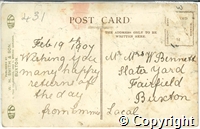 431
POST CARD
THE ADDRESS ONLY TO BE
WRITTEN HERE
Feb 19th 07
Wishing you
many happy
returns of
the day
from
Mr & Mrs W Bennett
Slate Yard
Fairfield
Buxton
Local
www.picturethepast.org.uk